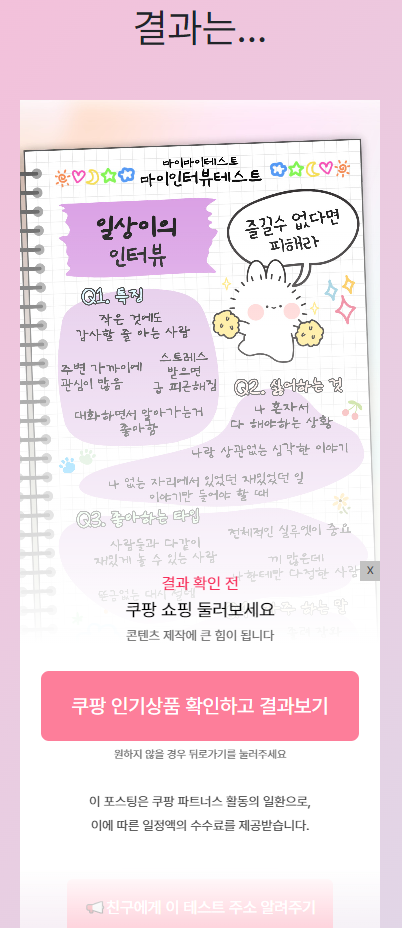 결과는...
마이마이테스트
마이인터뷰테스트
일상이의
인터뷰
즐길수 없다면
피해라
Q1. 특징
작은 것에도
감사할 줄 아는 사람
주변 가까이에
관심이 많음
스트레스
받으면
급 피곤해짐
대화하면서 알아가는거
좋아함
Q2. 싫어하는 것
나 혼자서
다 해야하는 상황
나랑 상관없는 심각한 이야기
나 없는 자리에서 있었던 재밌었던 일
이야기만 들어야 할 때
Q3. 좋아하는 타입
사람들과 다같이
재밌게 놀 수 있는 사람
전체적인 실루엣이 중요
끼 많은데
한테만 다정한 사람
뜬금없는
하는 말
결과 확인 전
쿠팡 쇼핑 둘러보세요
콘텐츠 제작에 큰 힘이 됩니다
X
쿠팡 인기상품 확인하고 결과보기
원하지 않을 경우 뒤로가기를 눌러주세요
이 포스팅은 쿠팡 파트너스 활동의 일환으로,
이에 따른 일정액의 수수료를 제공받습니다.
친구에게 이 테스트 주소 알려주기